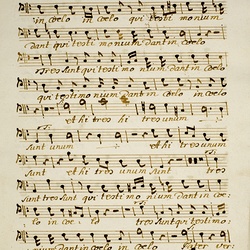 in coelo in coelo qui testimonium
dant qui testimonium dant in coelo
Tres sunt qui testimonium dant in coelo
qui testimonium dant in coelo in coelo
et hi tres hi tres unum
sunt unum et hi tres unum sunt
et hi tres unum sunt tres
sunt tres sunt qui testimonium dant in coe-
lo in coe-lo tres sunt qui testimo:
nium dant in coelo Pater ver